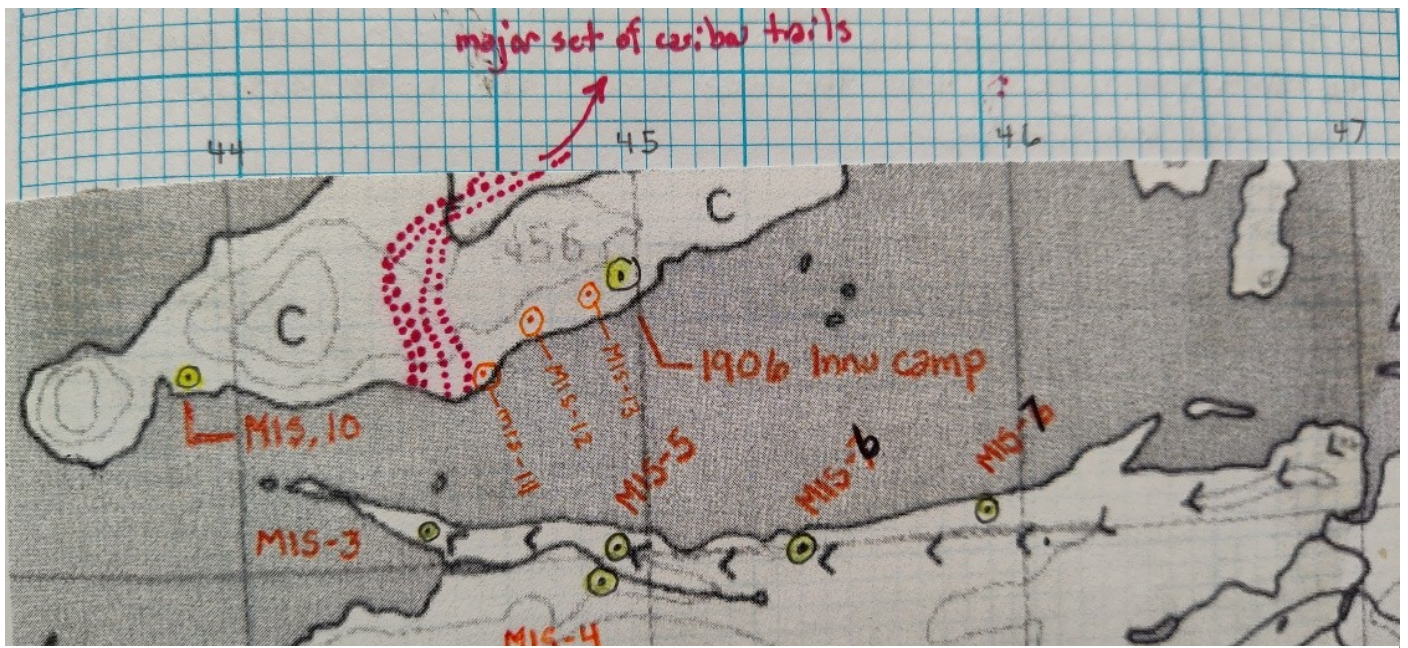 major set of caribou trails
44
45
46
47
C
456
C
1906 Innu camp
MIS-13
MIS-12
MIS-11
MIS, 10
MIS-5
MIS-6
MIS-7
MIS-3
MIS-4